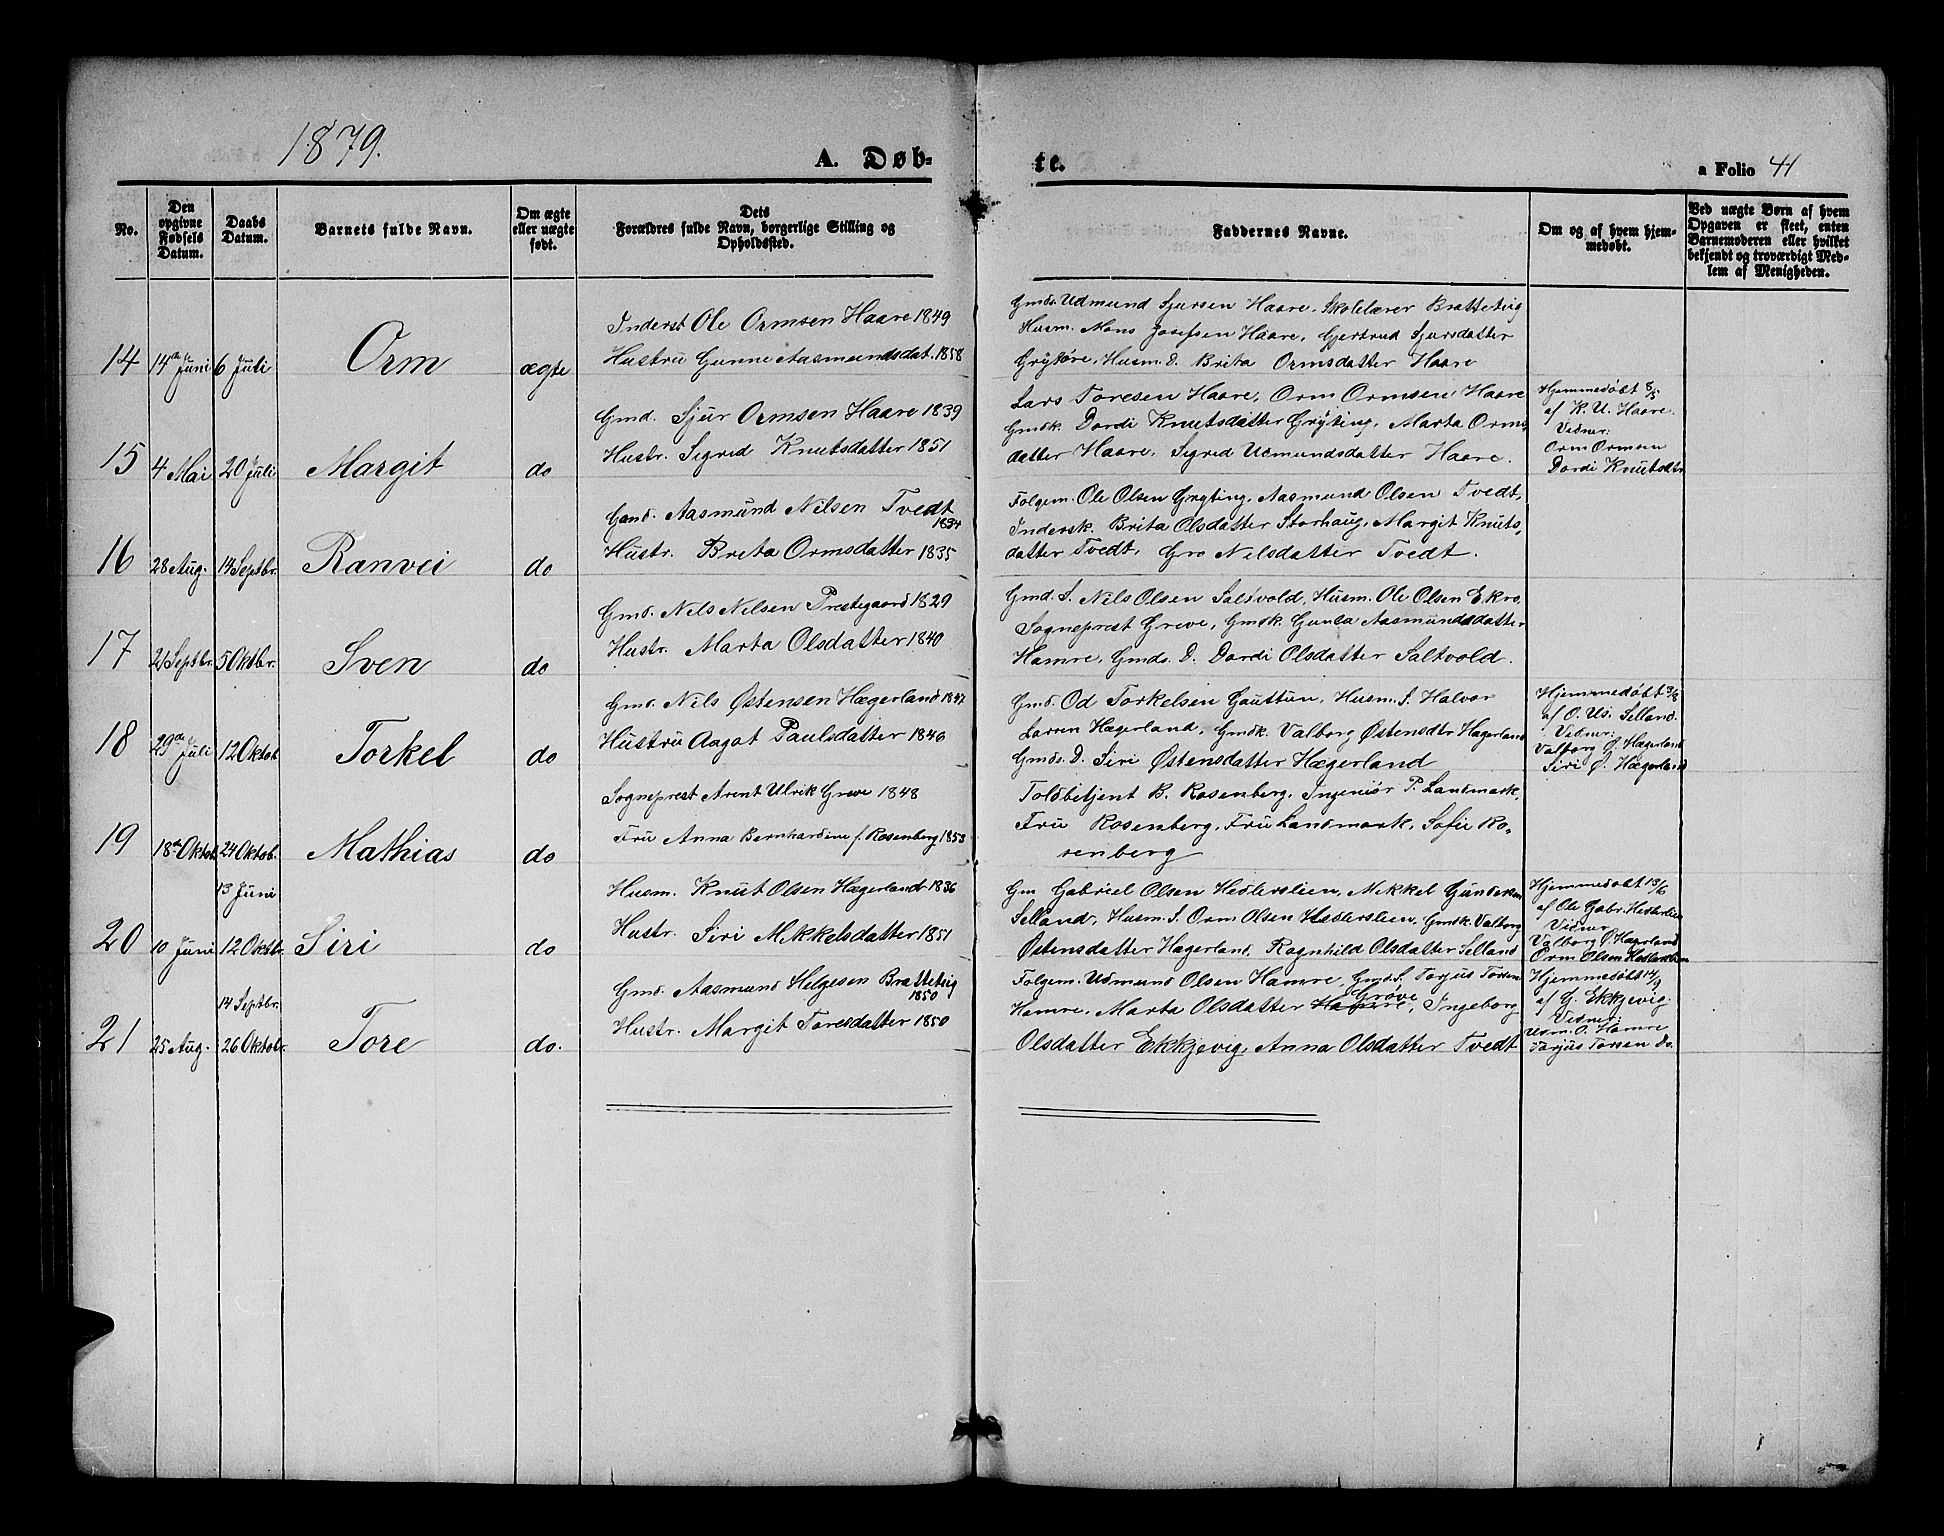 1879.
A. Døb-
te.
a Folio 41
No.
Den opgivne Fødsels Datum.
Daabs Datum.
Barnets fulde Navn.
Om ægte eller uægte født.
Dets Forældres fulde Navn, borgerlige Stilling og Opholdssted.
Faddernes Navne.
Om og af hvem hjemmedøbt.
Ved uægte Børn af hvem Opgaven er skeet, enten Barnemoderen eller hvilket bekjendt og troværdigt Medlem af Menigheden.
14 14de Juni 6 Juli Orm ægte
Inderst Ole Ormsen Haare 1849
Hustru Gunne Aasmundsdat. 1858
Gmds Udmund Sjursen Haare, Skolelærer Bratteteig
Husm. Mons Josefsen Haare, Gjertrud Sjursdatter
Grytøre, Husm. D. Brita Ormsdatter Haare
15 4 Mai 20 Juli Margit do
Gmd. Sjur Ormsen Haare 1839
Hustr. Sigrid Knutsdatter 1851
Lars Toresen Haare, Orm Ormsen Haare
Gmdk. Dordi Knutsdatter Gryting, Marta Orms
datter Haare, Sigred Udmundsdatter Haare.
Hjemmedøbt 8/5
af K. U. Haare.
Vidner:
Orm Ormsen
Dordi Knutsdtr
16 28 Aug. 14 Septbr. Ranvei do
Gmd. Aasmund Nilsen Tvedt
1834
Hustr. Brita Ormsdatter 1835
Folgem. Ole Olsen Gryting, Aasmund Olsen Tvedt,
Indersk. Brita Olsdatter Storhaug, Margit Knuts-
datter Tvedt, Gro Nilsdatter Tvedt.
17 21 Septbr. 5 Oktbr. Sven do
Gmd. Nils Nilsen Prestegaard 1829
Hustr. Marta Olsdatter 1840
Gmd. S. Nils Olsen Saltvold, Husm. Ole Olsen Ekro,
Sogneprest Greve, Gmdk. Gunla Aasmundsdatter
Hamre, Gmds. D. Dordi Olsdatter Saltvold.
18 29de Juli 12 Oktob. Torkel do
Gmd. Nils Østensen Hægerland 1847
Hustru Aagot Paulsdatter 1840
Gmd. Od Torkelsen Gauttun, Husm. S. Halvor
Larsen Hægerland, Gmdk. Valborg Østensdtr Hægerland
Gmds. D. Siri Østensdatter Hægerland
Hjemmedøbt 3/8
af O. Us. Selland.
Vidner:
Valborg Ø. Hægerland
Siri Ø. Hægerland
19 18de Oktob. 24 Oktob. Mathias do
Sogneprest Arent Ulrik Greve 1848
Fru Anna Bernhardine f. Rosenberg 1853
Toldbetjent B. Rosenberg, Ingeniør P. Landmark,
Fru Rosenberg, Fru Landmark, Sofie Ro-
senberg
20 10 Juni
13 Juni
12 Oktbr. Siri do
Husm. Knut Olsen Hægerland 1836
Hustr. Siri Mikkelsdatter 1851
Gm Gabriel Olsen Hedlerslien, Mikkel Gundersen
Selland, Husm. S. Orm Olsen Hedlerslien, Gmdk. Valborg
Østensdatter Hægerland, Ragnhild Olsdatter Selland
Hjemmedøbt 13/6
af Ole Gabr. Hedlerslien
Vidner
Valborg Ø. Hægerland
Orm Olsen Hedlerslien
21 25 Aug.
14 Septbr.
26 Oktobr. Tore do.
Gmd. Aasmund Helgesen Bratteteig
1850
Hustr. Margit Toresdatter 1850
Folgem. Udmund Olsen Hamre, Gmds. S. Torjus Torsen
Hamre, Marta Olsdatter Hamre Grøve, Ingeborg
Olsdatter Ekkjevig, Anna Olsdatter Tvedt
Hjemmedøbt 14/9
af G. Ekkjevig.
Vidner:
Udm. O. Hamre
Torjus Torsen do.